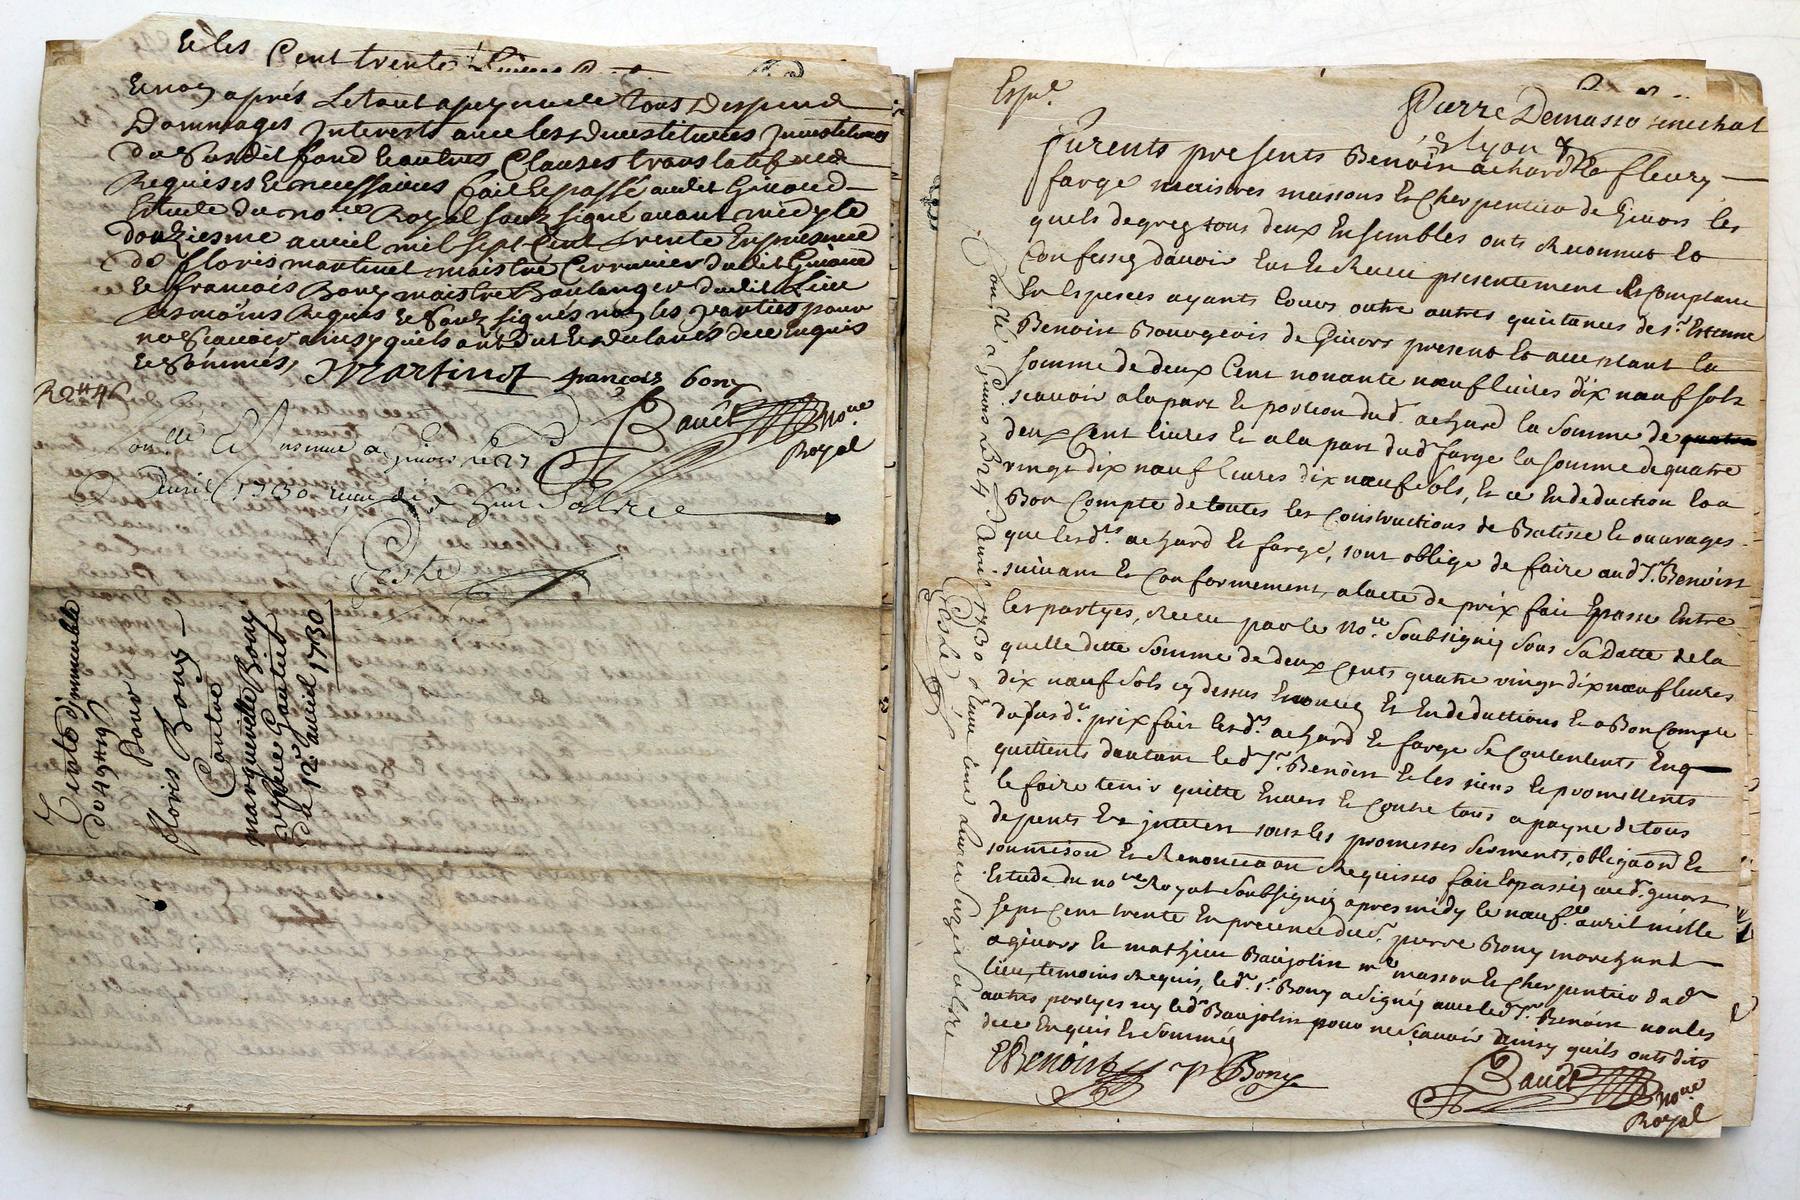 Et les
Cent trente Livres
Et nos après Le tout a peyne de tous Despend
Dommages Interests avec les devestitures Investitures
du Susdit fond & autres Clauses translatif
Requises & necessaires fait & passé audit Givord
Estude du no.re Royal soubsigné avant midy le
douziesme avril mil sept Cent trente En presence
de floris martinet maistre Serrurier dudit Givord
& francois Bony maistre Boulanger dudit Lieu
tesmoins Requis & Soubsignes non les parties pour
ne scavoir ainsy quils ont dit & declaré de ce Enquis
& Sommés,
Martinet françois bony
Bauet no.re
Royal
R 2# 4
onllé & Insinué a givors le 27
Avril 1730 reçu
Coste
Vente d'immeuble
du 49# 19s
Pour
floris Bony
Contre
marguerite Bony
vefve Gautier
du 12e avril 1730
Expé.
Pierre Demasso senechal
Lyon &
furents presents Benoin achard & fleury
farge maistres massons & Cherpentiers de Givors les
quels de grez tous deux Ensembles onts Reconnut &
Confessez davoir Eut & Receu presentement & Comptant
En Especes ayants Cours outre autres quittances de sr. Estienne
Benoist Bourgeois de Givors present & acceptant la
somme de deux Cent nonante neuf livres dix neuf sols
scavoir a la part & portion dud. achard la somme de quatre
deux Cent livres & a la part dud. farge la somme de quatre
vingt dix neuf livres dix neuf sols, & ce En deduction & a
Bon Compte de toutes les Constructions de Batisse & ouvrages
que lesd.ts achard & farge, sont oblige de faire aud. Sr. Benoist
suivant & Conformement, a lacte de prix fait Epassé Entre
les partyes, Receu par le no.re Soubsigné Sous Sa Datte de la
quelle ditte Somme de deux Cents quatre vingt dix neuf livres
dix neuf sols cy dessus Enoncez & En deductions & a Bon Compte
du susd.t prix fait lesd.ts achard & farge Se Contentents En q
quittents dautant led. Sr. Benoist & les siens & promettents
le faire tenir quitte Envers & Contre tous a payne de tous
depents & Interest sous les promesses Serments, obligaons &
soumision & Renonciaon Requises fait & passé aud. givors
Estude du no.re Royal Soubsigné apres midy le neuf.e avril mille
sept Cent trente En presence du Sr. pierre Bony marchand
a givors & mathieu Baujolin me. masson & Cherpentier dud.
lieu, temoins Requis, led. Sr. Bony a Signé avec led. Sr. Benoist non les
autres partyes ny led. Baujolin pour ne scavoir ainsy quils onts dits
de ce Enquis & Sommés
EBenoist P Bony
Bauet no.re
Royal
Con.lé a Givors Le 24 Avril 1730 Reçu une Livre
Coste